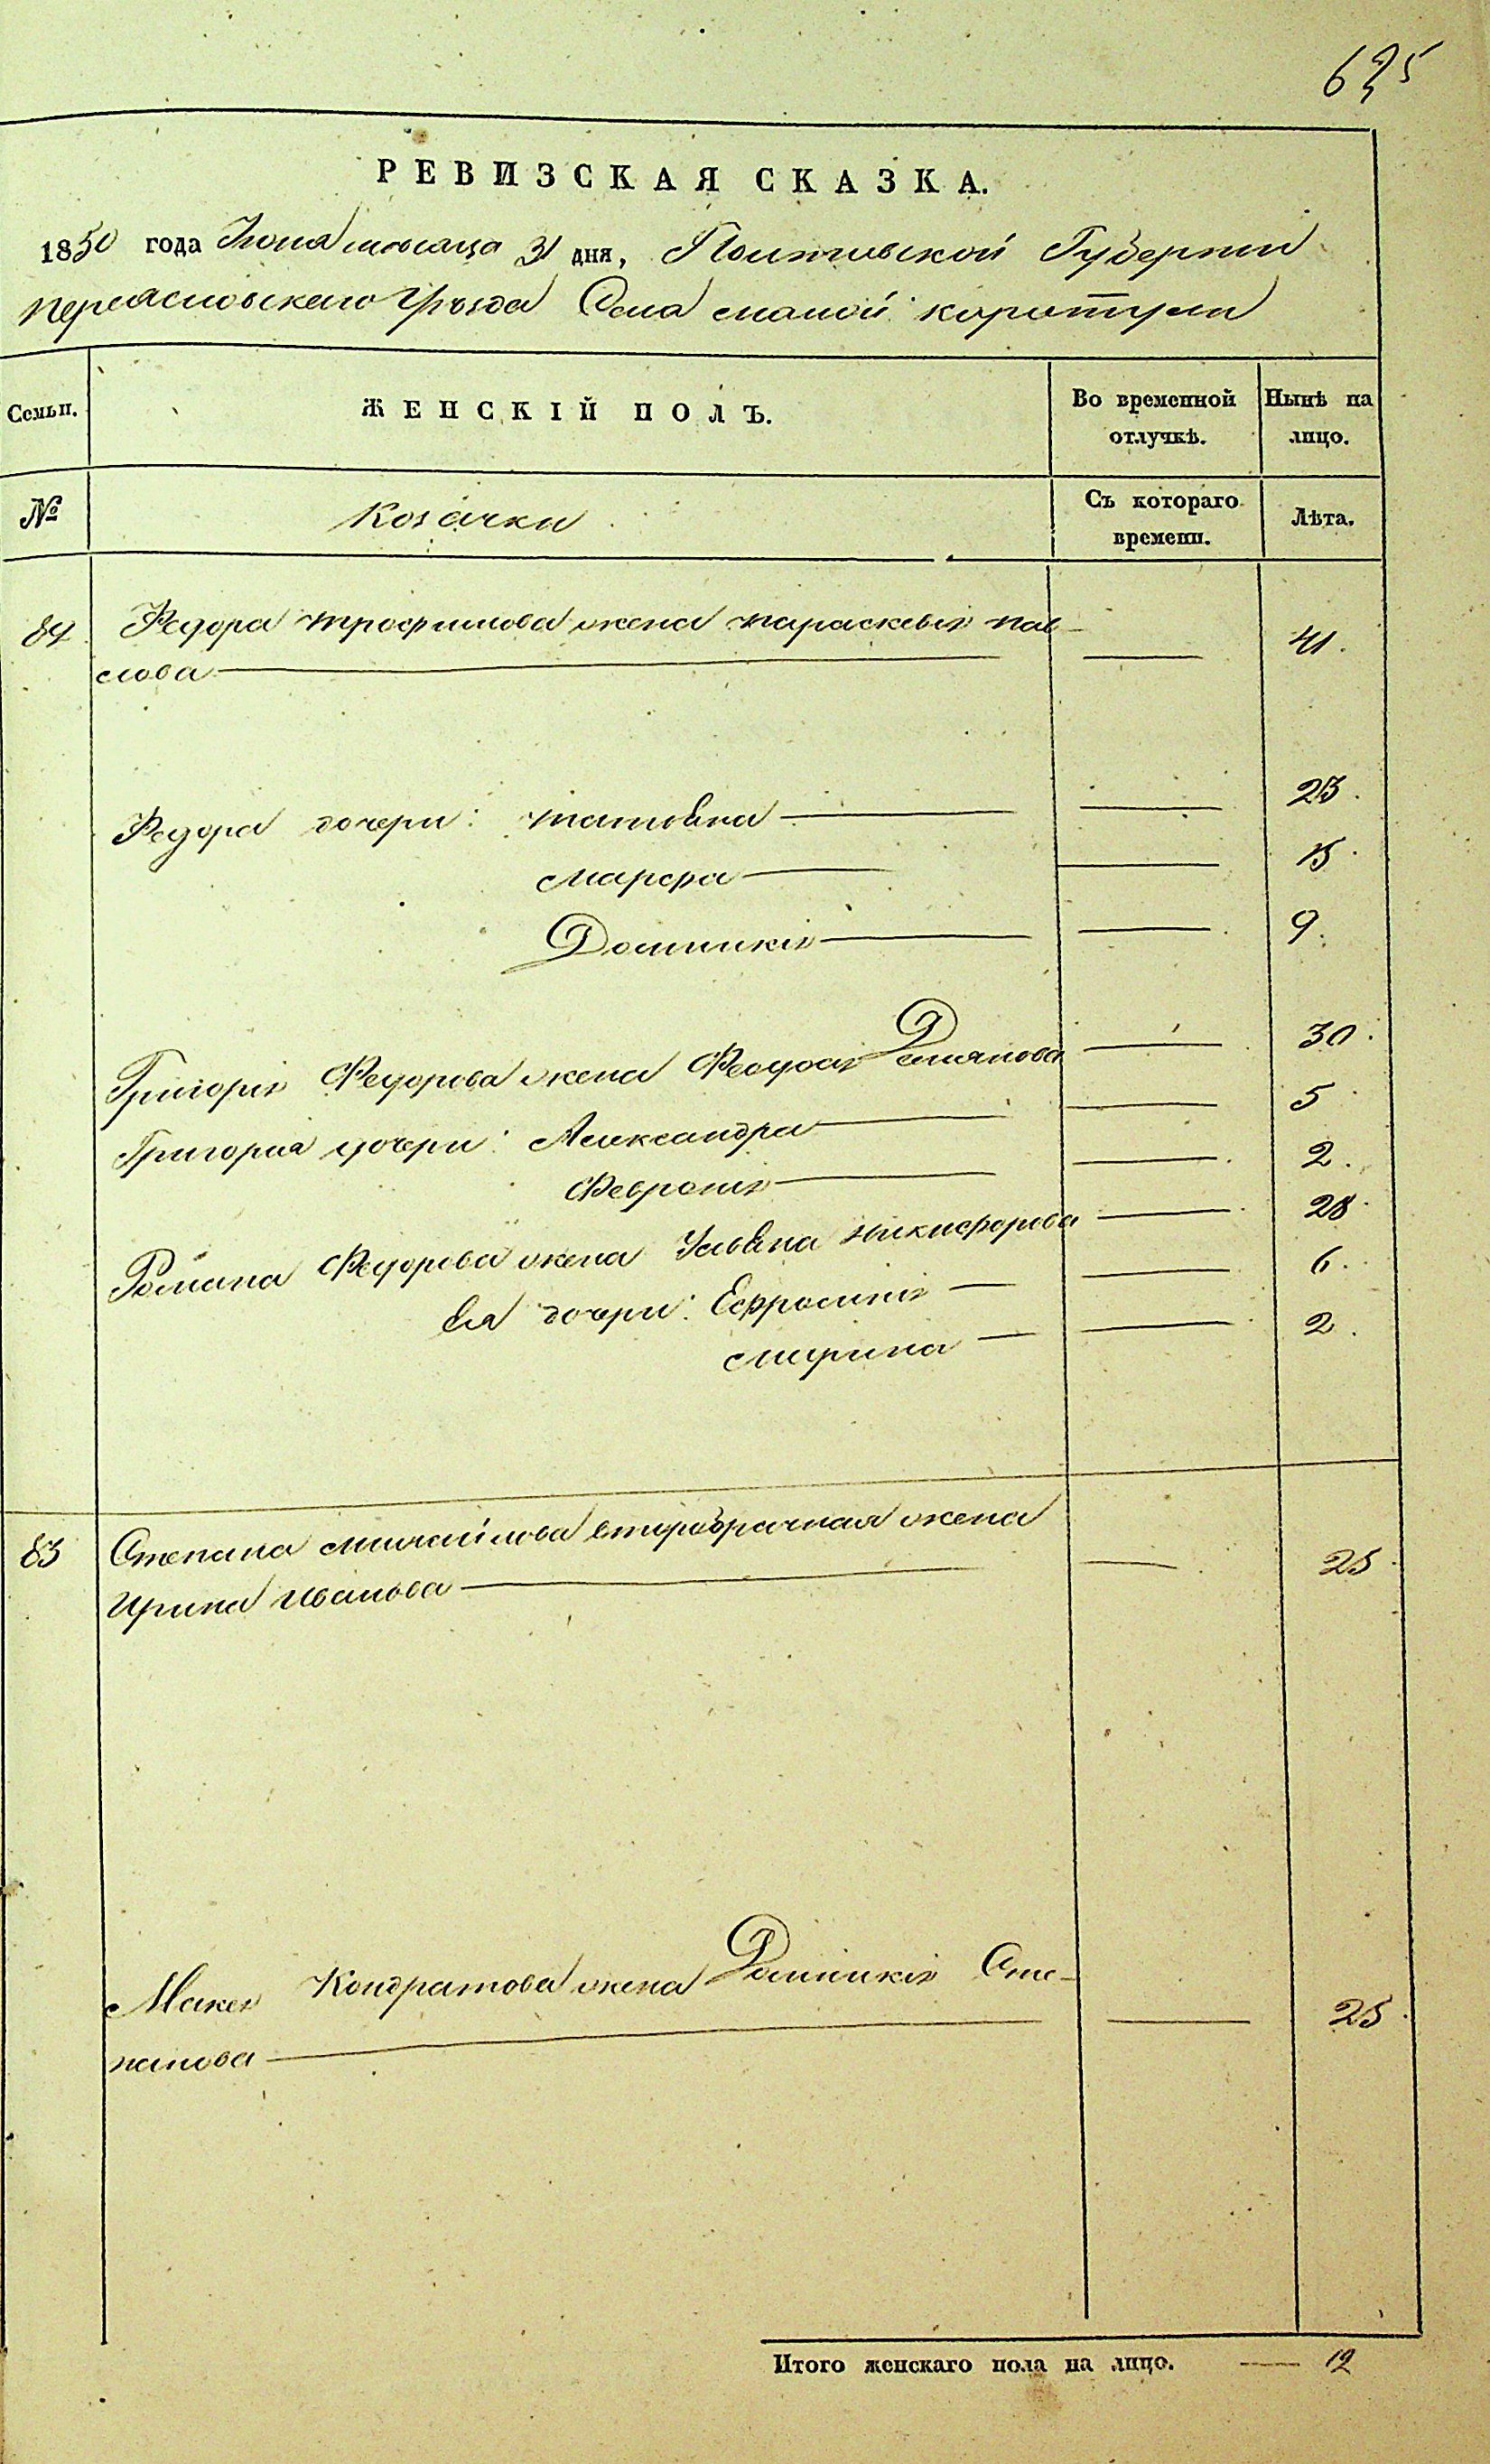 625
РЕВИЗСКАЯ СКАЗКА.
1850 года месяца 31 дня, Полтавской Губернии
Переясловского Уѣзда Села малой каратули
Семьи. ЖЕНСКІЙ ПОЛЪ. Во временной отлучкѣ. Нынѣ на лицо.
№ Козачки Съ котораго времени. Лѣта.
84 Федора трофимова жена параскевія пав- — 41.
слова —
Федора дочери: татьяна — — 23.
марфа — — 15.
Домникія — — 9.
Григорія Федорова жена Феодосія Демянова — 30.
Григория дочери: Александра — — 5
Феврония — — 2.
Романа Федорова жена Ульяна никифорова — 28.
Ея дочери: Ефросинія — — 6.
марина — — 2.
85 Степана михайлова второбрачная жена — 25.
Ирина Иванова —
Кондратова жена Домникія Сте- — 25.
панова —
Итого женскаго пола на лицо. — 12